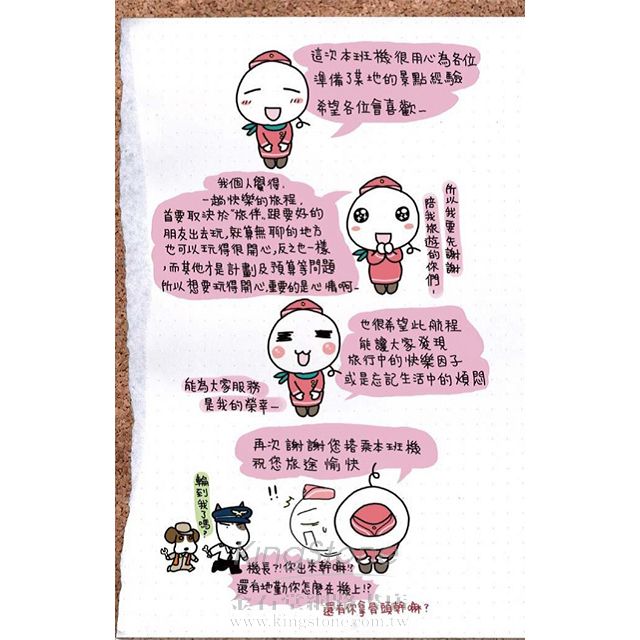 這次本班機很用心為各位
準備了某地的景點經驗
希望各位會喜歡~
我個人覺得,
一趟快樂的旅程,
首要取決於"旅伴",跟要好的
朋友出去玩,就算無聊的地方
也可以玩得很開心,反之也一樣
,而其他才是計劃及預算等問題
所以想要玩得開心,重要的是心情啊~
所以我要先謝謝
陪我旅遊的你們,
也很希望此航程
能讓大家發現
旅行中的快樂因子
或是忘記生活中的煩悶
能為大家服務
是我的榮幸~
再次謝謝您搭乘本班機
祝您旅途愉快
!!
輪到我了嗎?
機長?!你出來幹嘛!?
還有地勤你怎麼在機上!?
還有你拿骨頭幹嘛?
KingStone
金石堂網路書店
www.kingstone.com.tw